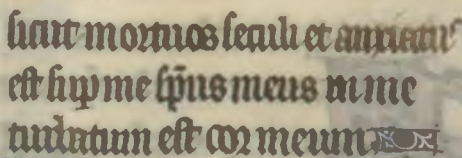 sicut mortuos seculi et anxiatus
est sup me sp̄us meus in me
turbatum est cor meum